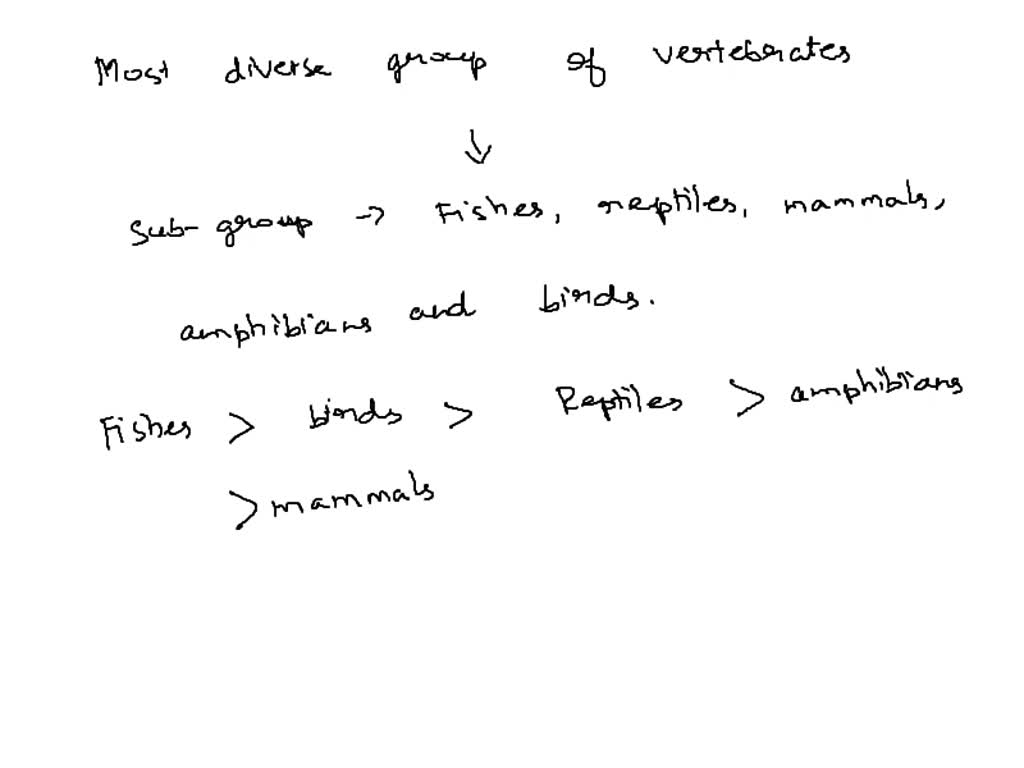 Most diverse group of vertebrates
↓
Sub-group → Fishes, reptiles, mammals,
amphibians and birds.
Fishes > birds > Reptiles > amphibians
> mammals